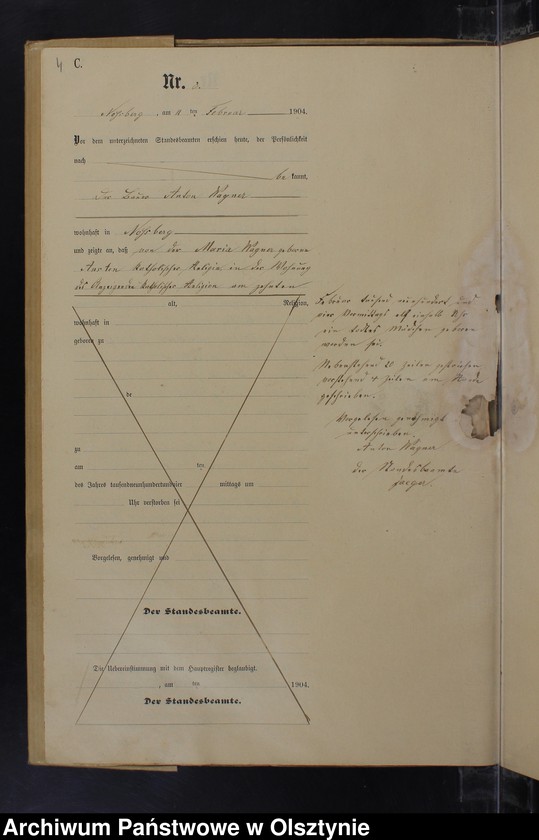 4 C.
Nr. 3.
Noßberg, am 11 ten Februar 1904.
Vor dem unterzeichneten Standesbeamten erschien heute, der Persönlichkeit
nach
be kannt,
Der Bauer Anton Wagner
wohnhaft in Noßberg
und zeigte an, daß von der Maria Wagner geborene
katholischer Religion in der Wohnung
des katholischer Religion am zehnten
alt, Religion,
wohnhaft in
geboren zu
de
zu
am ten
des Jahres tausendneunhundertundvier mittags um
Uhr verstorben sei
Vorgelesen, genehmigt und
Der Standesbeamte.
Die Uebereinstimmung mit dem Hauptregister beglaubigt.
, am ten 1904.
Der Standesbeamte.
Februar neunhundert und
vier Vormittags Uhr
ein todtes Mädchen geboren
worden sei.
Nebenstehend 20 Zeilen gestrichen
vorstehend 4 Zeilen am Rande
geschrieben.
Vorgelesen genehmigt
unterschrieben
Anton Wagner
der Standesbeamte
Archiwum Państwowe w Olsztynie